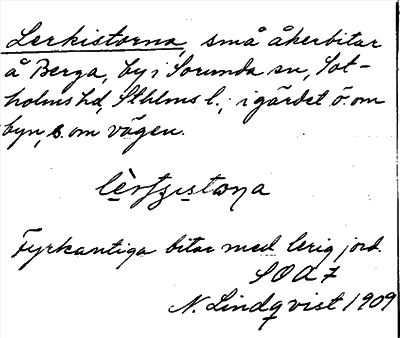 Lerkistorna, små åkerbitar
å Berga, by i Sorunda sn, Sot-
holms hd, Sthlms l., i gärdet ö. om
byn, s. om vägen.
Fyrkantiga bitar med lerig jord.
SOA 7
N. Lindqvist 1909